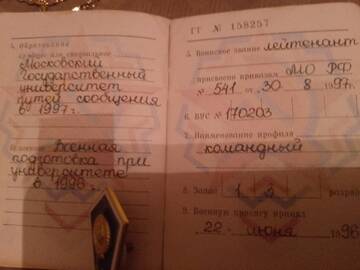 3. Образование
Московский
Государственный
университет
путей сообщения
в 1997 г.
Военная
подготовка при
университете
в 1996 г.
ГТ № 158257
5. Воинское звание лейтенант
присвоено приказом МО РФ
№ 541 от 30 8 1997 г.
6. ВУС № 170203
7. Наименование профиля
командный
8. Запас 1 3 разряд
9. Военную присягу принял
22 июня 1996